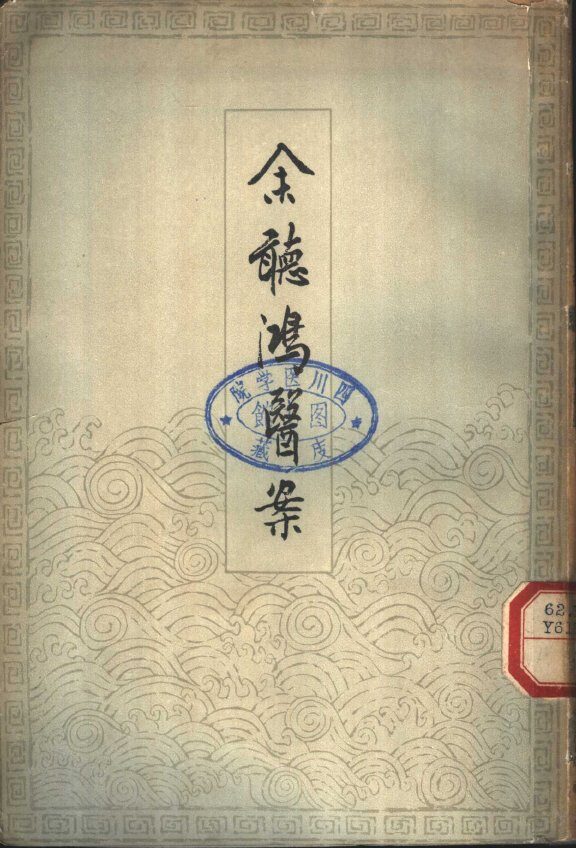 余聽鴻醫案
四川医学院
图
館
藏
62
Y61